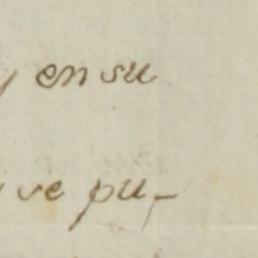 y en su
ve pu-